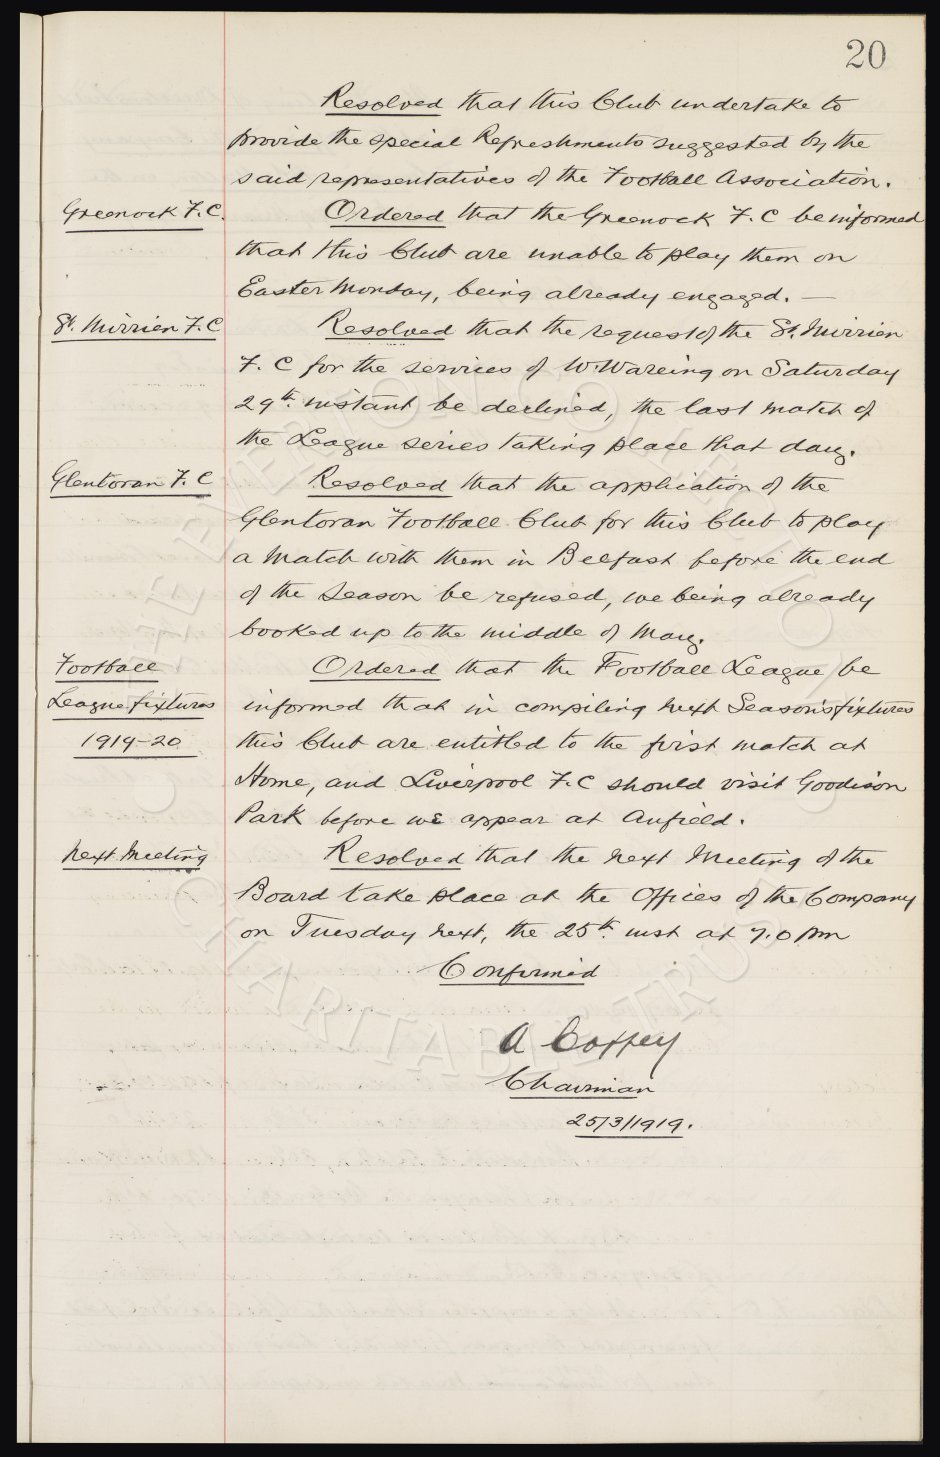 20
Resolved that this Club undertake to
provide the special Refreshments suggested by the
said representatives of the Football Association.
Greenock F.C. Ordered that the Greenock F.C be informed
that this Club are unable to play them on
Easter Monday, being already engaged. —
St. Mirrien F.C Resolved that the request of the St. Mirrien
F.C for the services of W. Wareing on Saturday
29th. instant be declined, the last match of
the League series taking place that day.
Glentoran F.C Resolved that the application of the
Glentoran Football Club for this Club to play
a match with them in Belfast before the end
of the Season be refused, we being already
booked up to the middle of May.
Football Ordered that the Football League be
League fixtures informed that in compiling next Season's fixtures
1919-20 this Club are entitled to the first match at
Home, and Liverpool F.C should visit Goodison
Park before we appear at Anfield.
Next Meeting Resolved that the next Meeting of the
Board take place at the Offices of the Company
on Tuesday next, the 25th. inst at 7.0 pm
Confirmed
A Coffey
Chairman
25/3/1919.
THE EVERTON COLLECTION
CHARITABLE TRUST